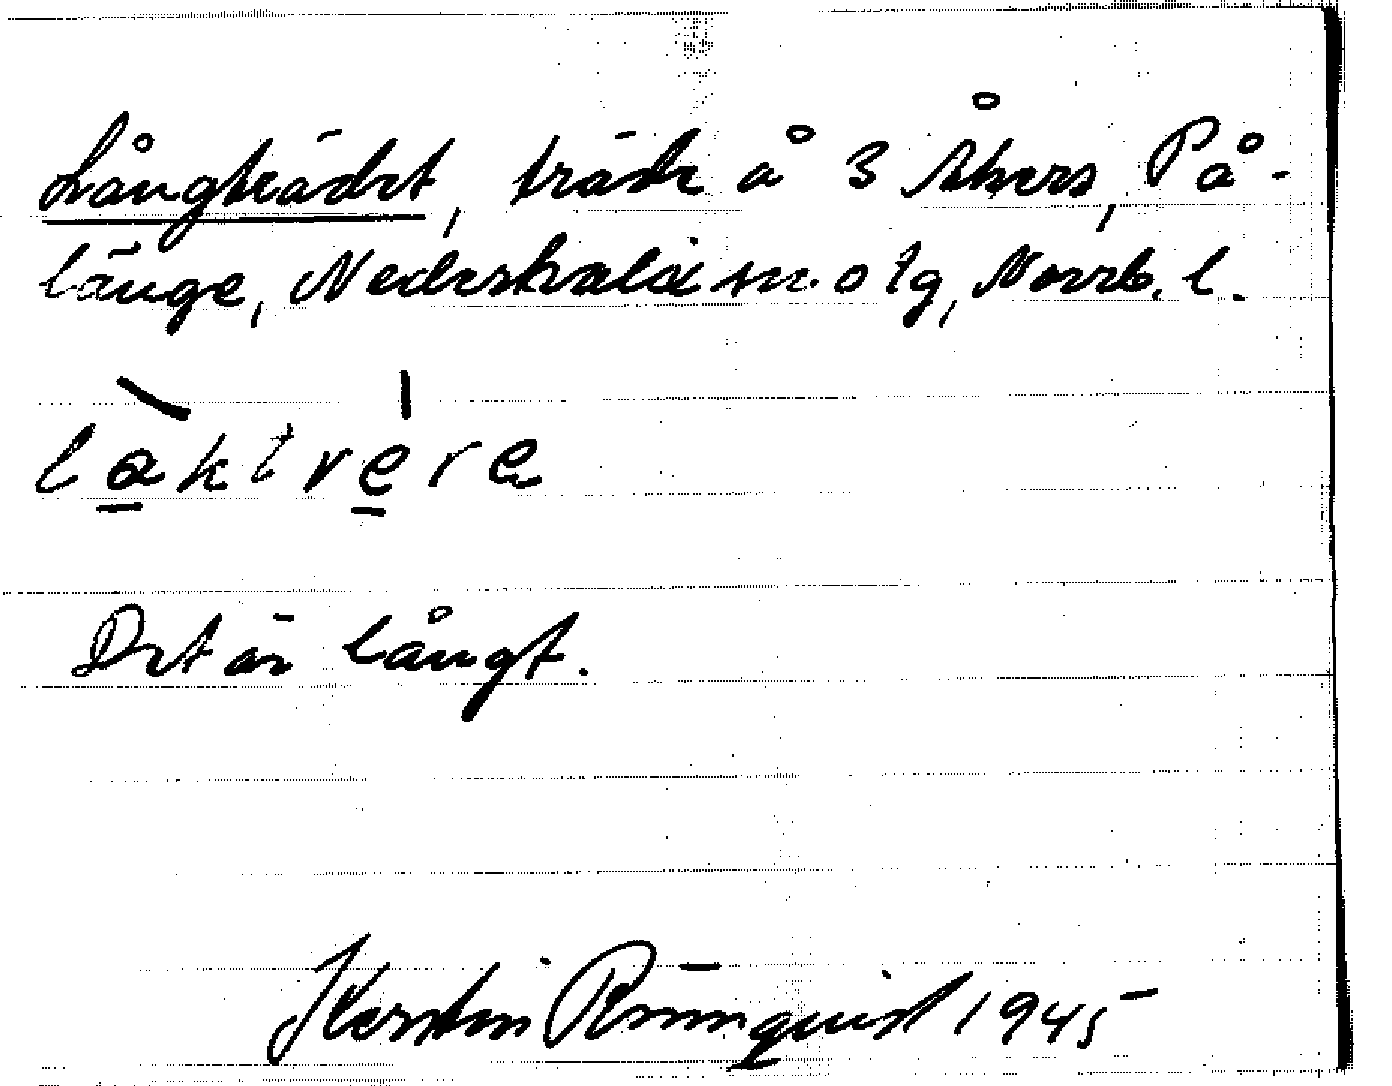 Långträdet, träde å 3 Åkers, På-
länge, Nederkalix sn. o tg, Norrb. l.
làktvére
Det är långt.
Kerstin Rönnquist 1945